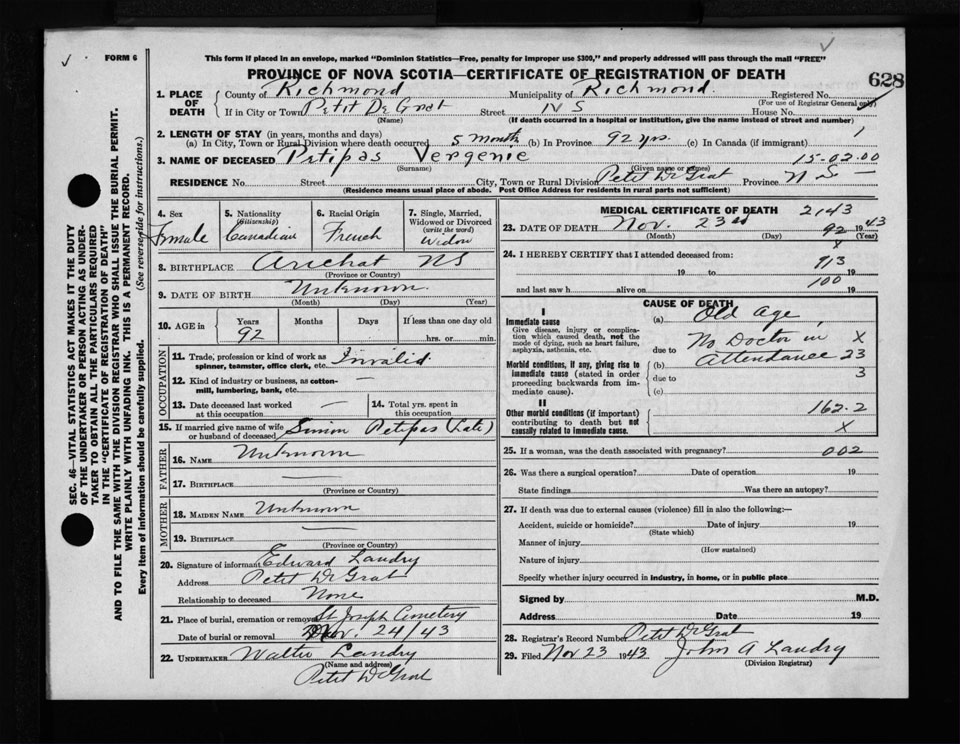 FORM 6
This form if placed in an envelope, marked "Dominion Statistics—Free, penalty for improper use $300," and properly addressed will pass through the mail "FREE"
PROVINCE OF NOVA SCOTIA—CERTIFICATE OF REGISTRATION OF DEATH
628
1. PLACE OF DEATH
County of Richmond Municipality of Richmond. Registered No.
(For use of Registrar General only)
If in City or Town Petit De Grat Street NS House No.
(Name) (If death occurred in a hospital or institution, give the name instead of street and number)
2. LENGTH OF STAY (in years, months and days)
(a) In City, Town or Rural Division where death occurred 5 months (b) In Province 92 yrs. (c) In Canada (if immigrant) 1
3. NAME OF DECEASED Petipas Vergenie 15-02.00
(Surname) (Given name or names)
RESIDENCE No. Street City, Town or Rural Division Petit De Grat Province N S —
(Residence means usual place of abode. Post Office Address for residents in rural parts not sufficient)
4. Sex Female
5. Nationality (Citizenship) Canadian
6. Racial Origin French
7. Single, Married, Widowed or Divorced (write the word) Widow
8. BIRTHPLACE Arichat NS
(Province or County)
9. DATE OF BIRTH Unknown.
(Month) (Day) (Year)
10. AGE in Years Months Days If less than one day old
92 hrs. or min.
OCCUPATION
11. Trade, profession or kind of work as spinner, teamster, office clerk, etc. Invalid
12. Kind of industry or business, as cotton-mill, lumbering, bank, etc. —
13. Date deceased last worked at this occupation —
14. Total yrs. spent in this occupation
15. If married give name of wife or husband of deceased Simon Petipas (Late)
FATHER
16. NAME Unknown
17. BIRTHPLACE —
(Province or Country)
MOTHER
18. MAIDEN NAME Unknown
19. BIRTHPLACE —
(Province or Country)
20. Signature of informant Edward Landry
Address Petit De Grat
Relationship to deceased None
21. Place of burial, cremation or removal St Joseph Cemetery
Date of burial or removal Nov. 24/43
22. UNDERTAKER Walter Landry
(Name and address)
Petit De Grat
MEDICAL CERTIFICATE OF DEATH 2143
23. DATE OF DEATH Nov. 23rd 92 1943
(Month) (Day) (Year)
24. I HEREBY CERTIFY that I attended deceased from: X
19 to 913 19
and last saw h alive on 100 19
CAUSE OF DEATH
I
Immediate cause
Give disease, injury or complication which caused death, not the mode of dying, such as heart failure, asphyxia, asthenia, etc.
(a) Old age,
due to No Doctor in X
(b) Attendance 23
Morbid conditions, if any, giving rise to immediate cause (stated in order proceeding backwards from immediate cause).
due to 3
(c)
II
Other morbid conditions (if important) contributing to death but not causally related to immediate cause.
162.2
X
25. If a woman, was the death associated with pregnancy? 002
26. Was there a surgical operation? Date of operation 19
State findings Was there an autopsy?
27. If death was due to external causes (violence) fill in also the following:—
Accident, suicide or homicide? Date of injury 19
(State which)
Manner of injury
(How sustained)
Nature of injury
Specify whether injury occurred in industry, in home, or in public place
Signed by M.D.
Address Date 19
28. Registrar's Record Number Petit De Grat
29. Filed Nov 23 1943 John A Landry
(Division Registrar)
SEC. 46—VITAL STATISTICS ACT MAKES IT THE DUTY
OF THE UNDERTAKER OR PERSON ACTING AS UNDER-
TAKER TO OBTAIN ALL THE PARTICULARS REQUIRED
IN THE "CERTIFICATE OF REGISTRATION OF DEATH"
AND TO FILE THE SAME WITH THE DIVISION REGISTRAR WHO SHALL ISSUE THE BURIAL PERMIT.
WRITE PLAINLY WITH UNFADING INK. THIS IS A PERMANENT RECORD.
Every item of information should be carefully supplied. (See reverse side for instructions.)